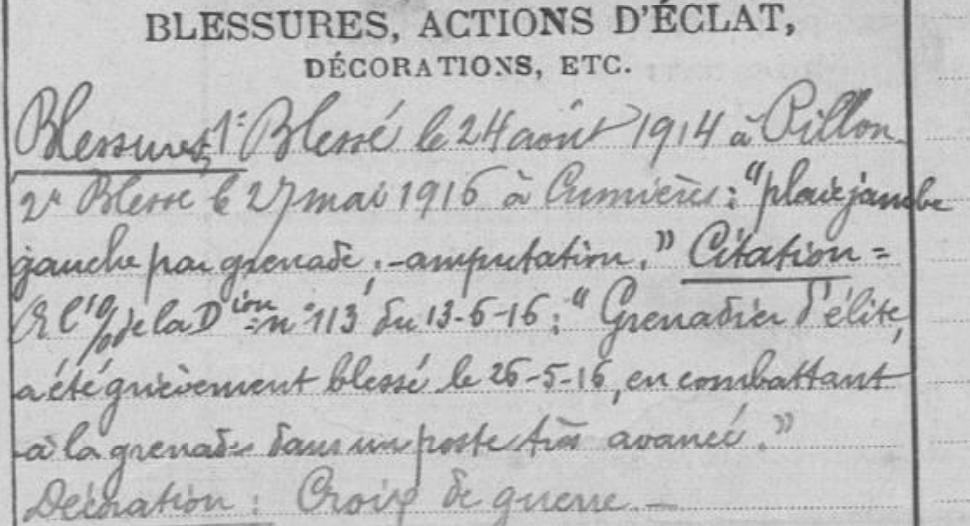 BLESSURES, ACTIONS D'ÉCLAT,
DÉCORATIONS, ETC.
Blessures, 1: Blessé le 24 août 1914 à Pillon
2e Blessé le 27 mai 1916 à Cumières: "plaie jambe
gauche par grenade, - amputation." Citation =
à l'o/ de la Dion n° 113 du 13-6-16: "Grenadier d'élite,
a été grièvement blessé le 26-5-16, en combattant
à la grenade dans un poste très avancé."
Décoration: Croix de guerre. -